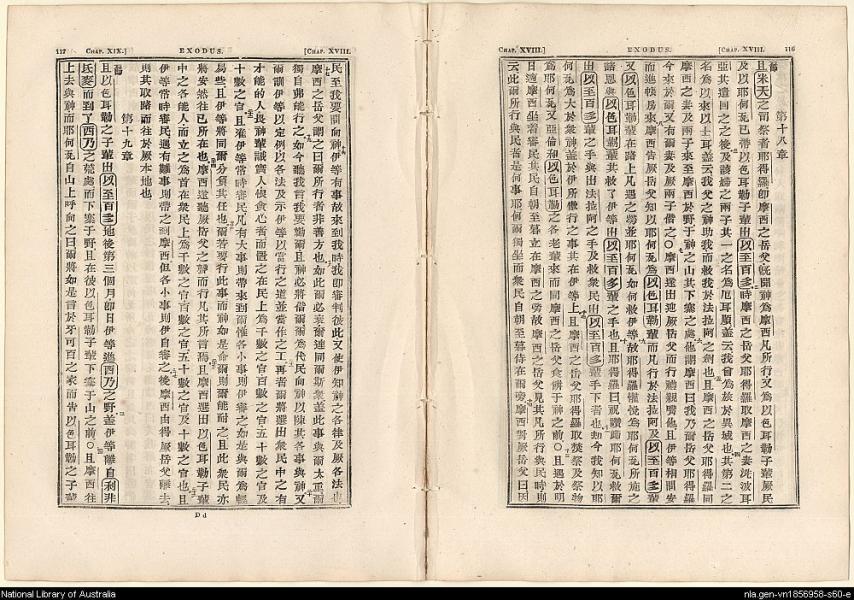 CHAP. XVIII.] EXODUS. [CHAP. XVIII. 116
第十八章
且米天之司祭者耶得羅卽摩西之岳父旣聞神爲摩西凡所行又爲以色耳勒子輩厥民
及以耶何瓦已帶以色耳勒子輩出以至百多時摩西之岳父耶得羅取摩西之妻洗波耳
亞其遣回之之後及厥婦之兩子其一之名爲厄耳順蓋云我曾爲旅於異域也其第二之
名爲以來以士耳蓋云我父之神助我而救我於法拉阿之劍也且摩西之岳父耶得羅同
摩西之妻及兩子來至摩西於野于神之山其下寨之處他謂摩西曰我乃爾岳父耶得羅
今來於爾又有爾妻及厥兩子偕之○摩西遂出迎厥岳父而行禮親嘴他且伊等相問安
而進帳房來摩西告厥岳父知以耶何瓦爲以色耳勒輩而凡行於法拉阿及以至百多輩
又以色耳勒輩在路上凡遇之勞並耶何瓦如何救伊等故耶得羅懽悅爲耶何瓦所施之
諸恩與以色耳勒輩其救了伊等出以至百多輩之手也且耶得羅曰祝讚歸耶何瓦救爾
出以至百多輩之手與出法拉阿之手及救衆民出以至百多輩手下者也如今我知以耶
何瓦爲大於衆神蓋於伊所傲行之事其在伊等上且摩西之岳父耶得羅取焚祭及祭物
爲耶何瓦又亞倫和以色耳勒之各老輩來而同摩西之岳父食餅于神之前○且遇於明
日適摩西坐着審民其民自朝至暮立在摩西之旁故摩西之岳父見其凡所行與民時則
云此爾所行與民者是何事耶何爾獨坐而衆民自朝至暮待在爾旁摩西對厥岳父曰因
117 CHAP. XIX.] EXODUS. [CHAP. XVIII.
民至我要問向神伊等有事故來到我時我卽審判彼此又使伊知神之各律及厥各法也
摩西之岳父謂之曰爾所行者非善方也如此爾必衰爾連同爾斯衆蓋此事與爾太重爾
獨自弗能行之如今聽我言我要勸爾且神必將偕爾爾爲代民向神以陳其各事與神又
爾訓伊等以定例以各法及示伊等以當行之道並當作之工再者爾將選出衆民中之有
才能的人畏神輩誠實人恨貪心者而置之在民上爲千數之官百數之官五十數之官及
十數之官且准伊等常時審民凡有大事則帶來到爾惟各小事則伊審之如是與爾爲輕
易些且伊等將同爾分負其任也爾若要行此事而神如是命爾則爾能耐之且此衆民亦
將安然往已所在也摩西遂聽厥岳父之聲而行凡其所言焉且摩西選出以色耳勒子輩
中之各能人而立之爲首在衆民上爲千數之官百數之官五十數之官及十數之官也且
伊等常時審民遇有難事則帶之到摩西但各小事則伊自審之後摩西由得厥岳父離去
則其取路而往於厥本地也
第十九章
且以色耳勒之子輩出以至百多地後第三個月卽日伊等進西乃之野蓋伊等離自利非
氐麥而到了西乃之荒處而下寨于野且在彼以色耳勒子輩下寨于山之前○且摩西往
上去與神而耶何瓦自山上呼向之曰爾將如是言於牙可百之家而告以色耳勒之子輩
D d
National Library of Australia
nla.gen-vn1856958-s60-e